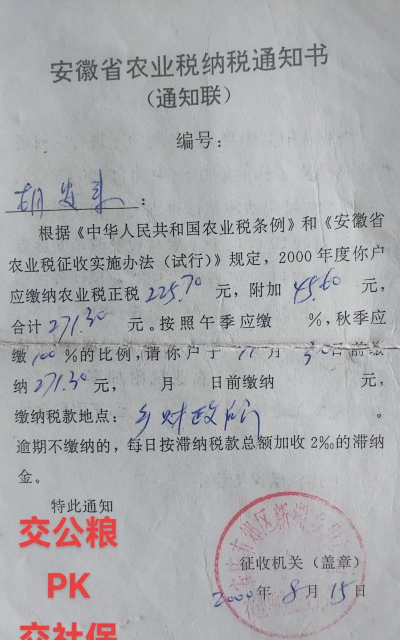 安徽省农业税纳税通知书
（通知联）
编号：
胡发来：
根据《中华人民共和国农业税条例》和《安徽省
农业税征收实施办法（试行）》规定，2000年度你户
应缴纳农业税正税225.70元，附加45.60元，
合计271.30元。按照午季应缴 %，秋季应
缴100%的比例，请你户于11月30日前缴
纳271.30元， 月 日前缴纳 元，
缴纳税款地点：乡财政所 。
逾期不缴纳的，每日按滞纳税款总额加收2‰的滞纳
金。
特此通知
征收机关（盖章）
2000年8月15日
交公粮
PK
交社保